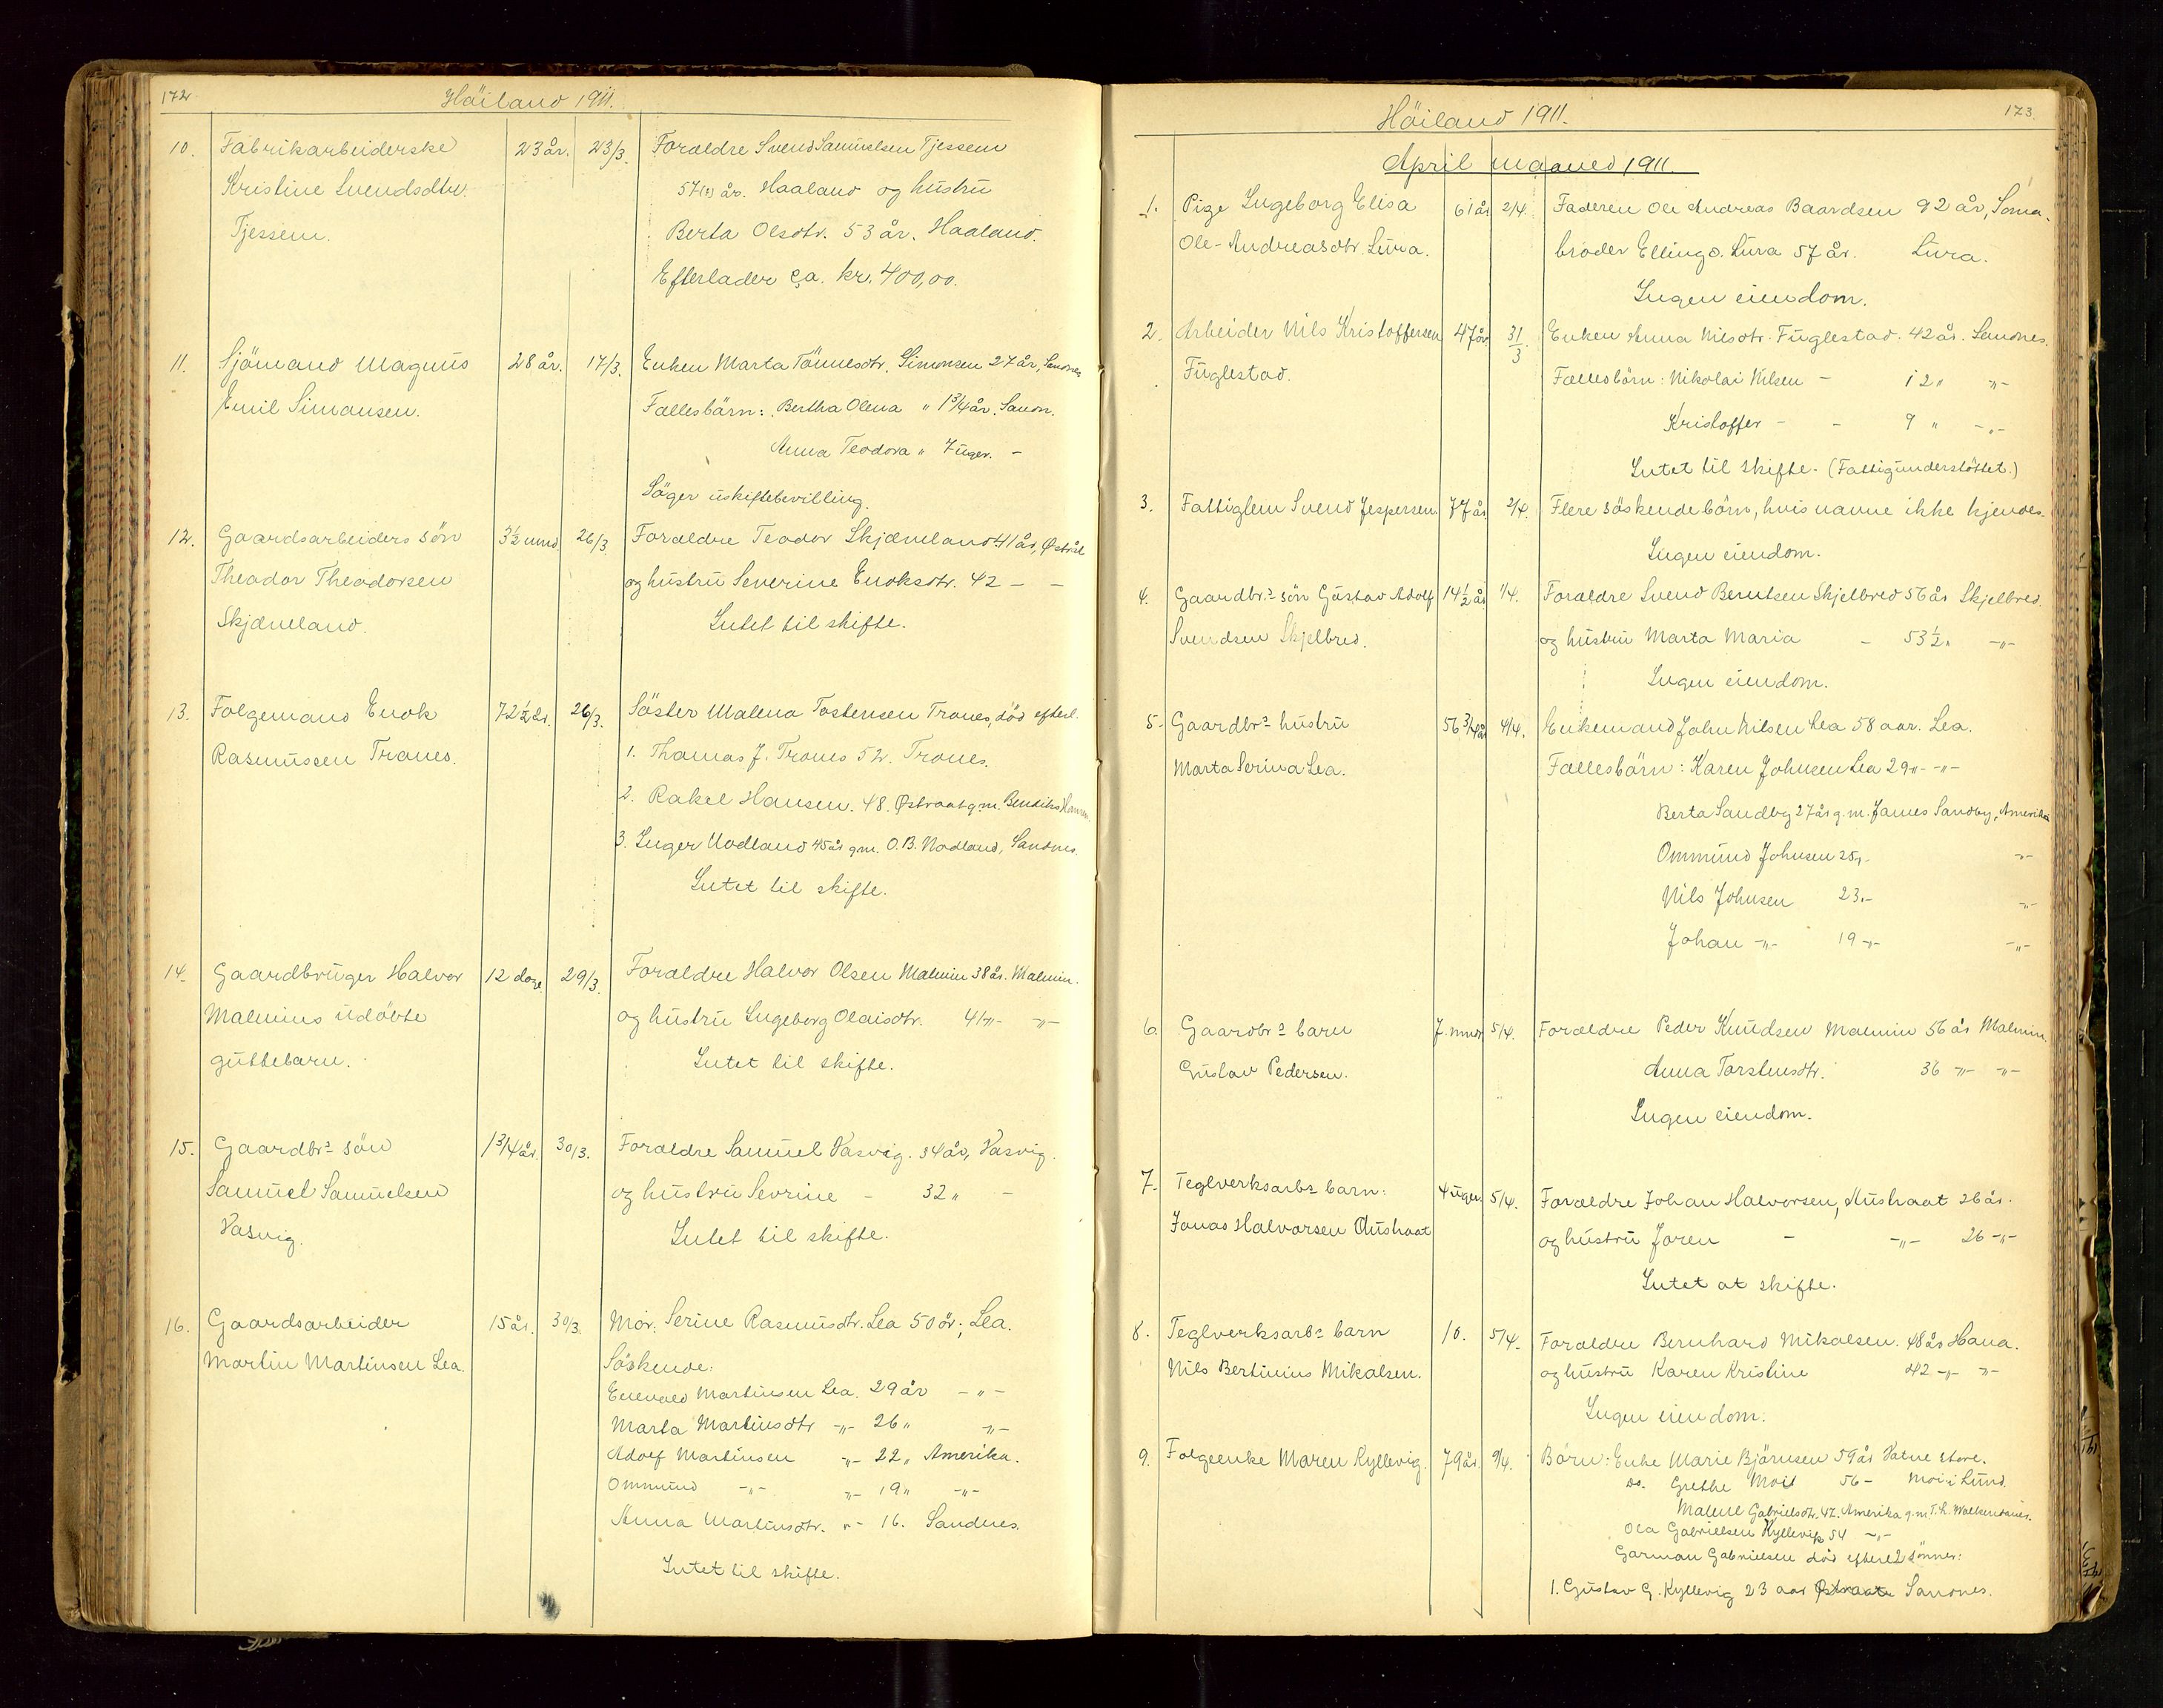 172
Häiland 1911.
10. Fabrikarbeiderske 23 år. 23/3. Foraldre Svend Samuelsen Tjessem
Kristine Svendsdtr. 57 år. Haaland og hustru
Tjessem. Berta Olsdtr. 53 år. Haaland.
Efterlader ca. kr. 400,00.
11. Sjömand Magnus 28 år. 17/3. Enken Marta Tönnesdtr. Simonsen 27 år, Sandnes
Emil Simonsen. Fællesbärn: Bertha Olena " 1 3/4 år. Sandn.
Anna Teodora " 7 uger. -
Söger uskiftebevilling.
12. Gaardsarbeiders sön 3½ mnd. 26/3. Foraldre Teodor Skjæveland 41 år,
Theodor Theodorsen og hustru Severine Enoksdtr. 42 - -
Skjæveland. Intet til skifte.
13. Folgemand Enok 72½ år. 26/3. Söster Malena Tostensen Trones, död efterl.
Rasmussen Trones. 1. Thomas J. Trones 52. Trones.
2. Rakel Hansen. 48. Østraat g.m. Bendiks Hansen.
3. Inger Nodland 45 år g.m. O.B. Nodland, Sandnes.
Intet til skifte.
14. Gaardbruger Halvor 12 dage 29/3. Foraldre Halvor Olsen Malmin 38 år. Malmin.
Malmins udöbte og hustru Ingeborg Olaisdtr. 41 -"- -"-
guttebarn. Intet til skifte.
15. Gaardbrs sön 1 3/4 år. 30/3. Foraldre Samuel Vasvig. 34 år, Vasvig.
Samuel Samuelsen og hustru Sevrine - 32 " -
Vasvig. Intet til skifte.
16. Gaardsarbeider 15 år. 30/3. Mor: Serine Rasmusdtr. Lea 50 år; Lea.
Martin Martinsen Lea. Söskende:
Enevald Martinsen Lea. 29 år - " -
Marta Martinsdtr -"- 26 " -"-
Adolf Martinsen -"- 22 " Amerika.
Ommund -"- -"- 19 " -"-
Anna Martinsdtr. -"- 16. Sandnes.
Intet til skifte.
173.
Häiland 1911.
April maaned 1911.
1. Pige Ingeborg Elisa 61 år 2/4. Faderen Ole Andreas Baardsen 92 år, Soma.
Ole-Andreasdtr. Lura. broder Elling O. Lura 57 år. Lura.
Ingen eiendom.
2. Arbeider Nils Kristoffersen 47 år 31/3 Enken Anna Nilsdtr. Fuglestad. 42 år. Sandnes.
Fuglestad. Fællesbörn: Nikolai Nilsen - 12 " -"-
Kristoffer - - 9 " -"-
Intet til skifte. (Fattigunderstöttet.)
3. Fattiglem Svend Jespersen 77 år. 2/4. Flere söskendebörn, hvis navne ikke kjendes.
Ingen eiendom.
4. Gaardbr.s sön Gustav Adolf 14½ år 1/4. Foraldre Svend Berntsen Skjelbred 56 år Skjelbred.
Svendsen Skjelbred. og hustru Marta Maria - 53½ " -"-
Ingen eiendom.
5. Gaardbrs hustru 56 3/4 år 4/4. Enkemand John Nilsen Lea 58 aar. Lea.
Marta Serina Lea. Fællesbörn: Karen Johnsen Lea 29 -"- -"-
Berta Sandby 27 år g.m. James Sandby, Amerika
Ommund Johnsen 25 " - -"-
Nils Johnsen 23 " - -"-
Johan -"- 19 -"- -"-
6. Gaardbrs barn 7. mndr 5/4. Foraldre Peder Knudsen Malmin 56 år Malmin.
Gustav Pedersen. Anna Torstensdtr. 36 -"- -"-
Ingen eiendom.
7. Teglverksarbs barn: 4 uger 5/4. Foraldre Johan Halvorsen, Austraat 26 år.
Jonas Halvorsen Austraat og hustru Joren - -"- 26 -"-
Intet at skifte.
8. Teglverksarbs barn 10. 5/4. Foraldre Bernhard Mikalsen. 48 år Hana.
Nils Bertinius Mikalsen. og hustru Karen Kristine 42 -"- -"-
Ingen eiendom.
9. Folgeenke Maren Kyllevig. 79 år. 9/4. Börn: Enke Marie Bjärnsen 59 år Vatne store.
Do. Grethe Moi 56 - Moi i Lund.
Malene Gabrielsdtr. 47. Amerika g.m.
Ola Gabrielsen Kyllevik 54 -"-
Garman Gabrielsen död efterl. 2 sönner:
1. Gustav G. Kyllevig 23 aar Østraat Sandnes.